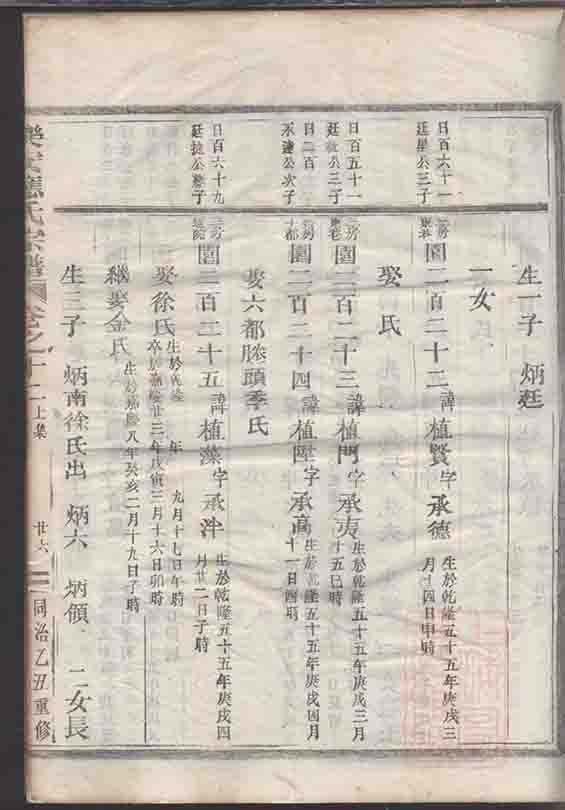 生一子 炳廷
一女
日百六十一
廷星公三子
園二百二十二諱植賢字承德 生於乾隆五十五年庚戌三
月十四日申時
娶 氏
日百五十一
公三子
園二百二十三諱植門字承夷 生於乾隆五十五年庚戌三月
十五巳時
日二百
永達公次子
園二百二十四諱植 字承高 生於乾隆五十五年庚戌四月
十一日酉時
娶六都 頭季氏
日百六十九
廷接公 子
園二百二十五諱植藻字承泮 生於乾隆五十五年庚戌四
月廿二日子時
娶徐氏 生於乾隆 年 九月十七日午時
卒於嘉慶廿三年戊寅三月十六日卯時
繼娶金氏 生於嘉慶八年癸亥二月十九日子時
生三子 炳南徐氏出 炳六 炳領 二女長
氏宗譜 卷之十二上集 廿六 同治乙丑重修